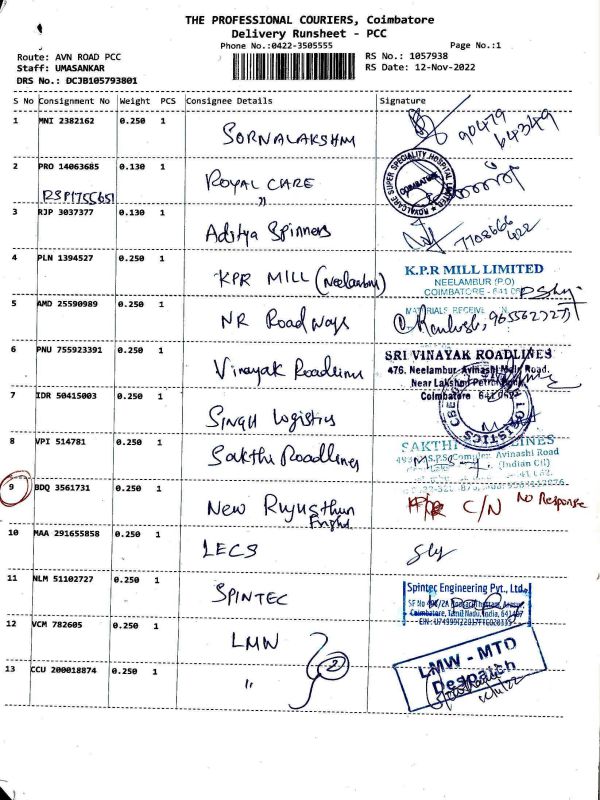 THE PROFESSIONAL COURIERS, Coimbatore
Delivery Runsheet - PCC
Phone No.:0422-3505555 Page No.:1
Route: AVN ROAD PCC RS No.: 1057938
Staff: UMASANKAR RS Date: 12-Nov-2022
DRS No.: DCJB105793801
S No Consignment No Weight PCS Consignee Details Signature
1 MNI 2382162 0.250 1 SORNALAKSHMI 90479
64349
2 PRO 14063685 0.130 1 ROYAL CARE
RSP1755651 "
ROYALCARE SUPER SPECIALITY HOSPITAL LIMITED
COIMBATORE
3 RJP 3037377 0.130 1 Aditya Spinners 7708666
422
4 PLN 1394527 0.250 1 KPR MILL (Neelambur) K.P.R MILL LIMITED
NEELAMBUR (P.O)
COIMBATORE - 641 062
5 AMD 25590989 0.250 1 NR Roadways MATERIALS RECEIVE
6 PNU 755923391 0.250 1 Vinayak Roadlines SRI VINAYAK ROADLINES
476, Neelambur Avinashi Main Road,
Near Lakshmi Petrol Bunk,
Coimbatore 641 062
7 IDR 50415003 0.250 1 Singh Logistics LOGISTICS
8 VPI 514781 0.250 1 Sakthi Roadlines SAKTHI ROADLINES
Avinashi Road
(Indian Oil)
9 BDQ 3561731 0.250 1 New Rajasthan C/N No Response
10 MAA 291655858 0.250 1 LECS
11 NLM 51102727 0.250 1 SPINTEC Spintec Engineering Pvt., Ltd.,
Coimbatore, Tamil Nadu, India, 641407
12 VCM 782605 0.250 1 LMW LMW - MTD
Despatch
13 CCU 200018874 0.250 1 " 2